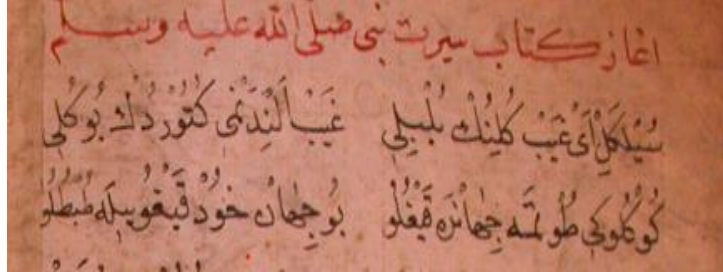 اغاز كتاب سيرت نبى صلى الله عليه وسلم
سُيْلَكِلْ اَىْ غَيْبْ كُلِنُكْ بُلْبُلِى غَيْبْ اَلِنْدَنْمى كَتُوُرْدُكْ بُو كُلِى
كُوكُلُوكى طُوتمَه جِهَانْدَه قَيْغُلُو بُو جِهَانْ خُودْ قَيْغُوِيلَه طُبْطُلُو